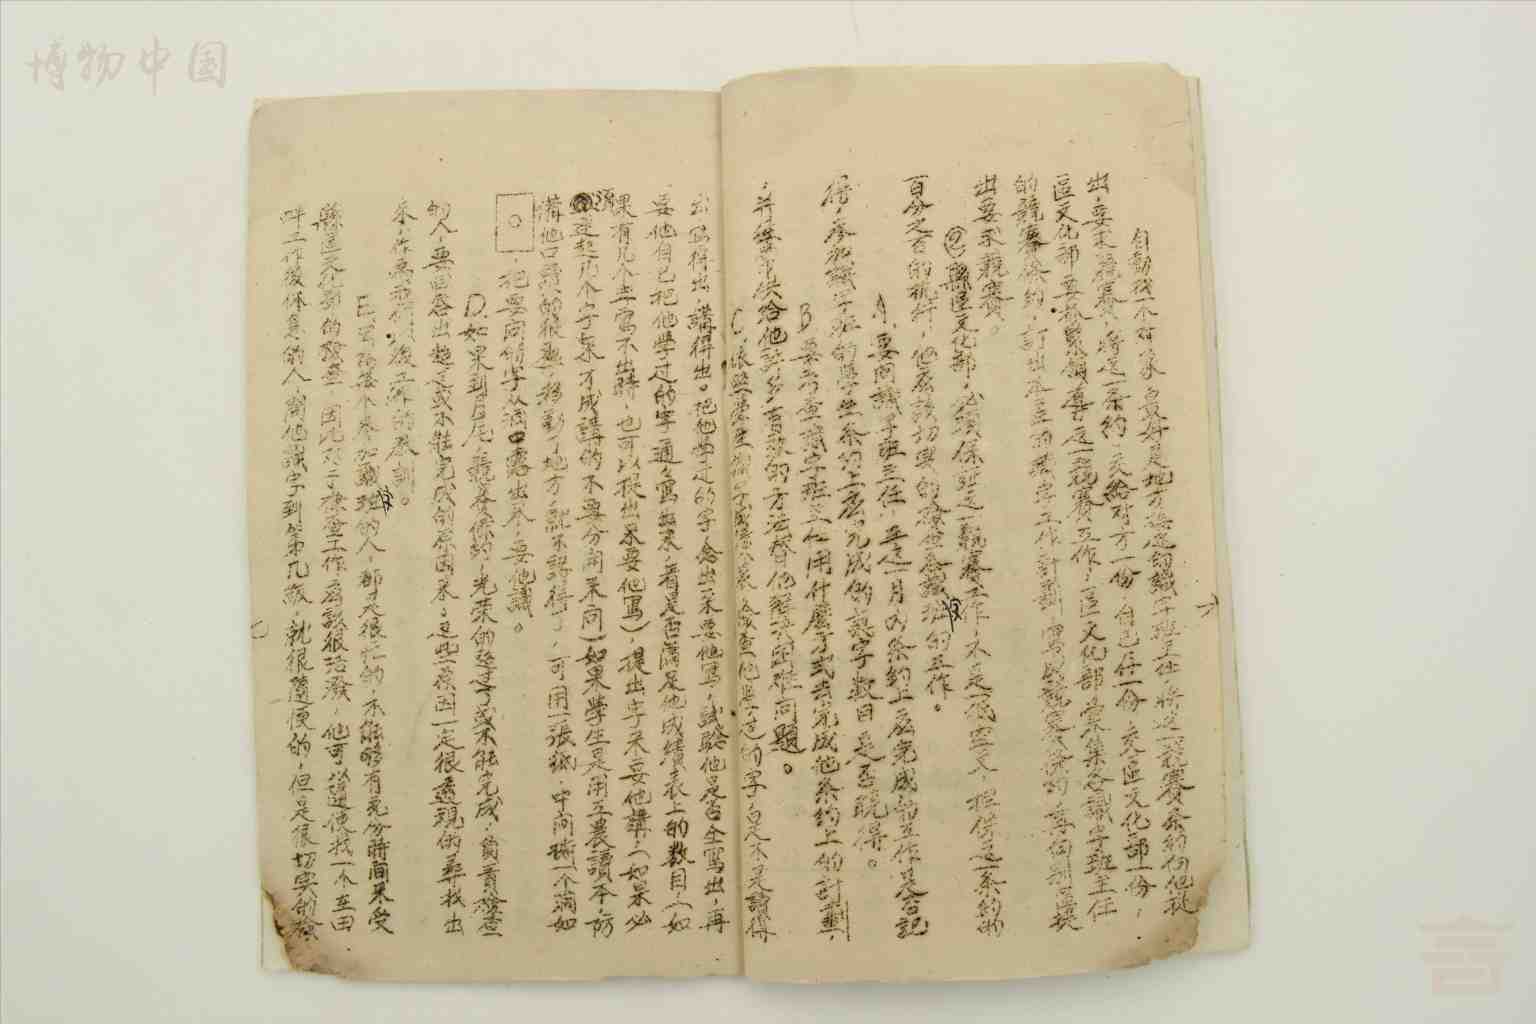 博物中国
自動找一个对象，最好是地方接近的識字班主任，將这一競賽条約向他提
出，要求競賽，將这一条約，交給对方一份，自己存一份，交區文化部一份，
區文化部要抓緊領導这一競賽工作，區文化部召集各識字班主任
的競賽條約，訂出本主的識字工作計劃，寫成競賽條約，向別區提
出要求競賽。
②縣區文化部，必須保証这一競賽工作，不是一張空文，担保这一条約的
百分之百的執行，他应該切实的檢查各識字班的工作。
A，要问識字班主任，在这一月的条約上应完成的工作是否記
得，参加識字班的學生条約上应完成的識字数目是否曉得。
B 要考查識字班主任用什麼方式去完成他条約上的計劃，
，并儘量供給他許多有效的方法，替他解决困难问題。
C，依照學生識字成績表，檢查他學过的字，是不是讀得
出寫得出，講得出。把他學过的字念出來要他寫，試驗他是否全寫出，再
要他自己把他學过的字通通寫出來，看是否滿足他成績表上的数目，（如
果有几个字寫不出時，也可以提出来要他寫），提出字来要他講，（如果必
須連起几个字來才成講的不要分開来问）如果學生是用工農讀本，防
備他口讀的很熟，移動了地方就不認得了，可用一張紙，中间挖一个洞如
，把要问的字从洞口露出来，要他識。
D，如果到月尾，競賽條約，光荣的超过了或不能完成，負責檢查
的人，要回答出超过或不能完成的原因来，这些原因一定很透現的尋找出
来，作為我們以後工作的教訓。
E，因為各个参加識字班的人，都是很忙的，不能夠有充分時间来受
縣區文化部的檢查，因此对于檢查工作应該很活潑，他可以隨便找一个在田
畔工作後休息的人，问他識字到第几課，就很隨便的，但是很切实的檢
六
七